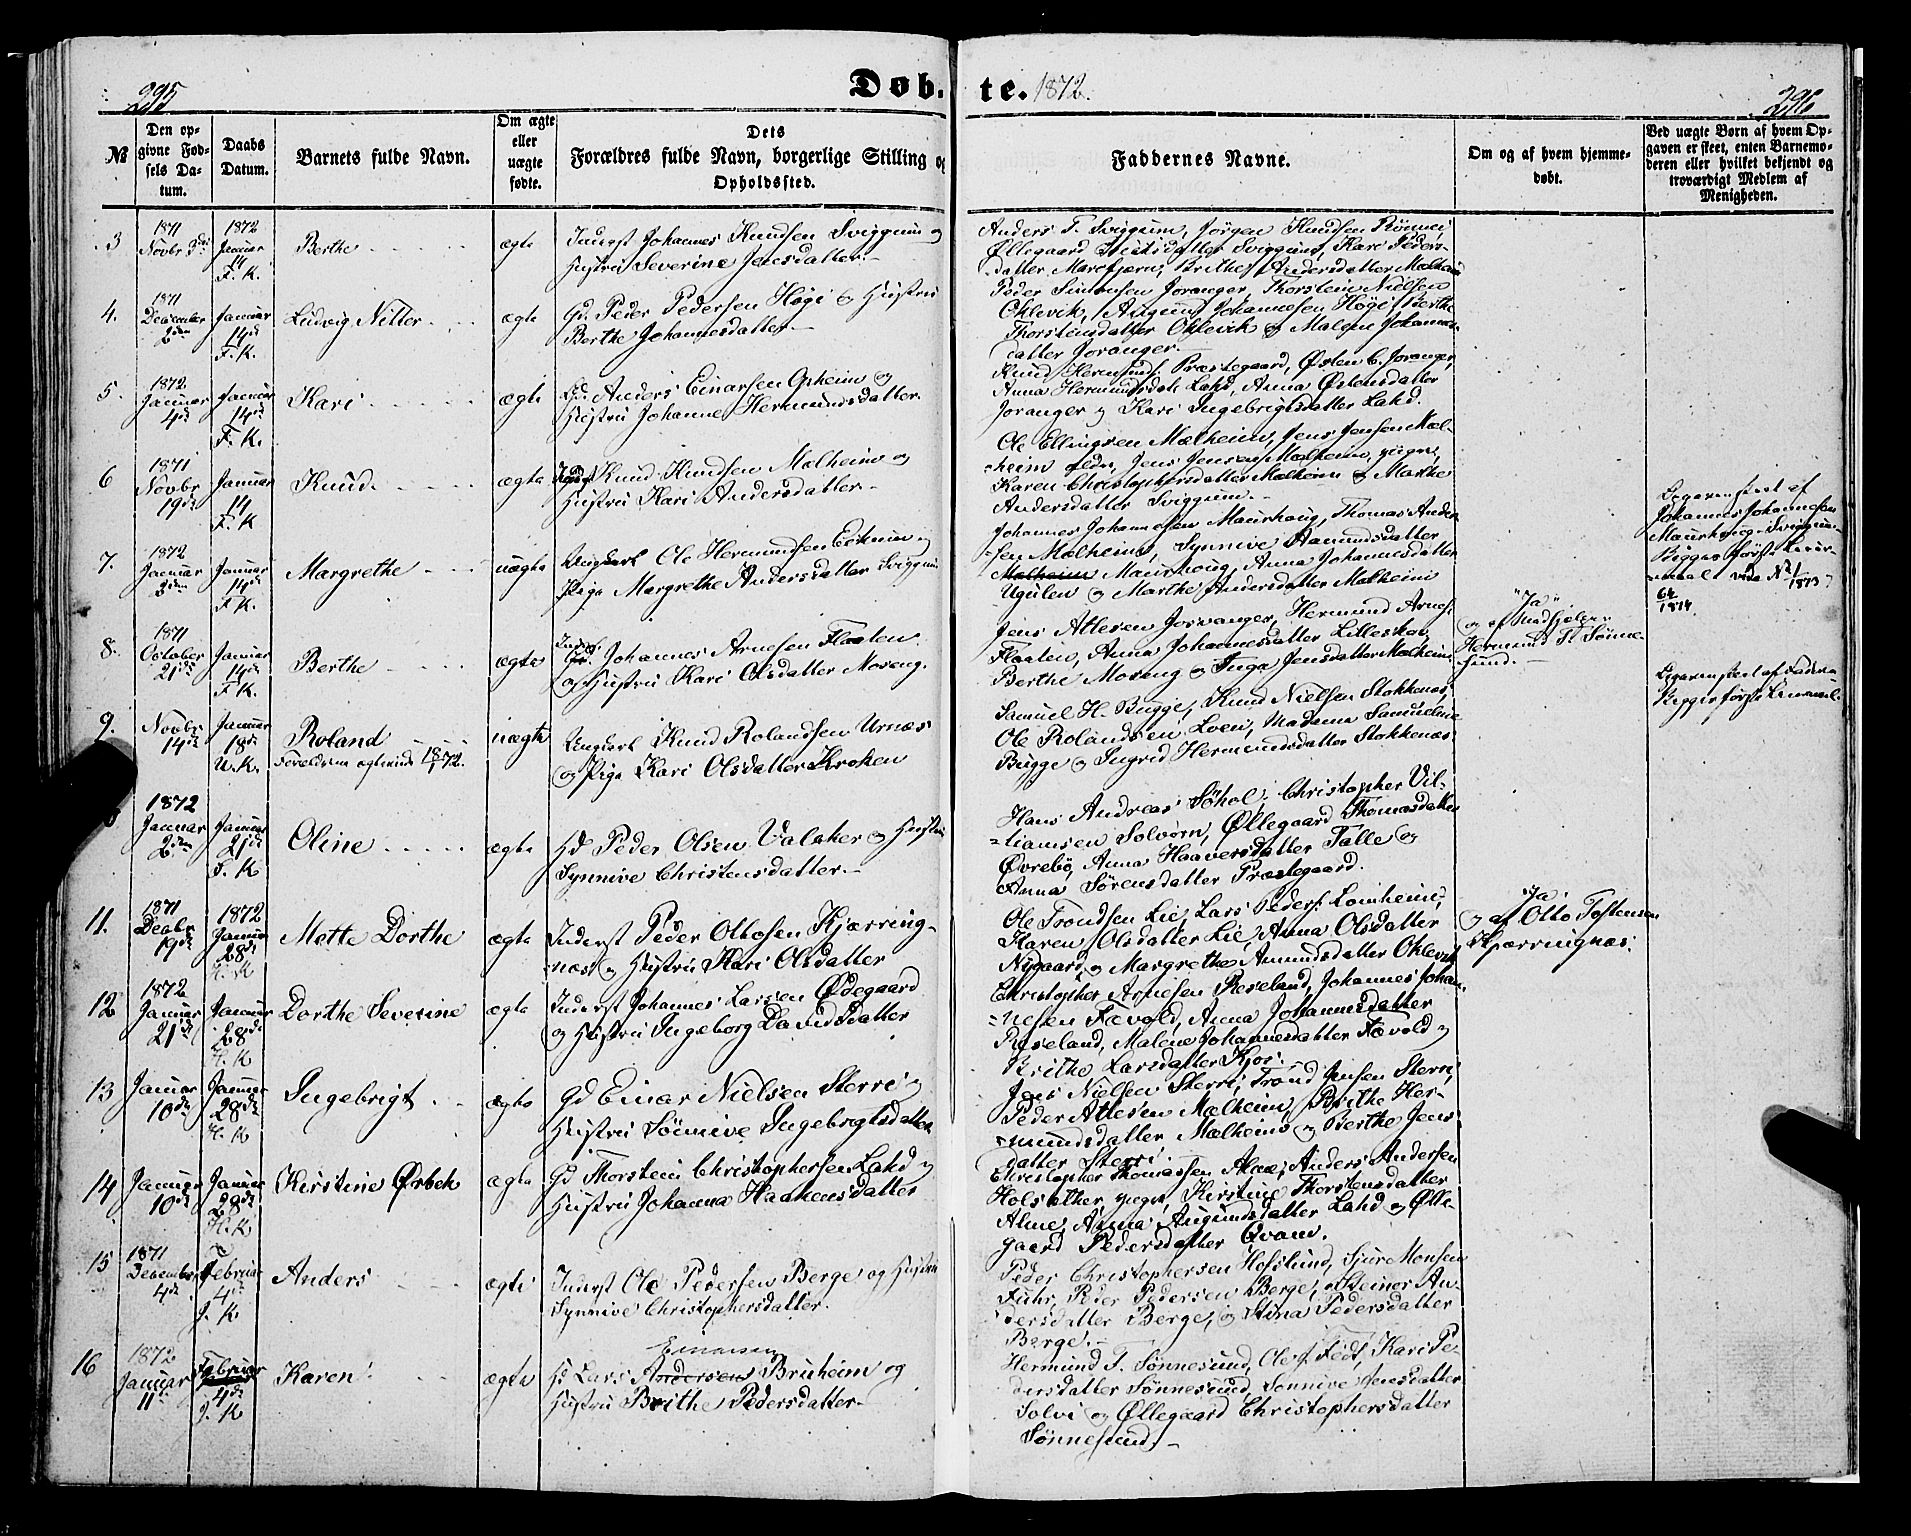 295
Døb.
te. 1872.
296
№
Den op-
givne Fød-
sels Da-
tum.
Daabs
Datum.
Barnets fulde Navn.
Om ægte
eller
uægte
fødte.
Dets
Forældres fulde Navn, borgerlige Stilling og
Opholdssted.
Faddernes Navne.
Om og af hvem hjemme-
døbt.
Ved uægte Børn af hvem Op-
gaven er skeet, enten Barnemo-
deren eller hvilket bekjendt og
troværdigt Medlem af
Menigheden.
3
1871
Novbr 3die
1872
Januar
14
F. K.
Berthe
ægte
Inderst Johannes Knudsen Sviggum og
Hustru Severine Jensdatter
Anders T. Sviggum, Jørgen Knudsen Rønnei
Øllegaard Sviggum, Kari Peders-
datter Marifjæren, Brithe Andersdatter Mælheim
4.
1871
December
2den
Januar
14de
F. K.
Ludvig Nitter
ægte
Gd. Peder Pedersen Høgi og Hustru
Berthe Johannesdatter
Peder Simonsen Joranger, Thorstein Nielsen
Oklevik, Augund Johannesen Høgi, Berthe
Thorstensdatter Oklevik og Malene Johannes-
datter Joranger.
5.
1872
Januar
4de
Januar
14de
F. K.
Kari
ægte
Gd. Anders Einarsen Opheim og
Hustru Johanne Hermundsdatter
Knud Hermunds. Præstegaard, Østen C. Joranger,
Anna Hermundsdatr Lahd, Anna Østensdatter
Joranger og Kari Ingebrigtsdatter Lahd.
6
1871
Novbr
19de
Januar
14
F. K
Knud.
ægte
Inderst Knud Knudsen Mælheim og
Hustru Kari Andersdatter
Ole Ellingsen Mælheim, Jens Jensen Mæl-
heim ældre, Jens Jensen Mælheim, yngre,
Karen Christophersdatter Mælheim og Marthe
Andersdatter Sviggum.
7.
1872
Januar
3den
Januar
14de
F. K.
Margrethe
uægte
Ungkarl Ole Hermundsen Eikum og
Pige Margrethe Andersdatter Sviggum
Johannes Johannesen Maurhoug, Thomas Ander-
sen Mælheim, Synnive Aamundsdatter
Mælheim Maurhoug, Anna Johannesdatter
Ugulen og Marthe Andersdatter Mælheim
Opgaven skeet af
Johannes Johannesen
Maurhoug Sviggum
Begges første Leier-
maal vide No 1/1873
64
1874
8.
1871
October
21de
Januar
14de
F. K.
Berthe
ægte
Inderst
Gd. Johannes Arnesen Flaaten
og Hustru Kari Olsdatter Moreng.
Jens Attesen Jorvanger, Hermund Arnes.
Flaaten, Anna Johannesdatter Lilleskov,
Berthe Moreng og Inga Jensdatter Mælheim
"Ja"
og af
Hermund T. Sønne-
sund.
9.
Novbr
14de
Januar
18de
U. K.
Roland
Forældrene ægteviede 18/1 72.
uægte
Ungkarl Knud Rolandsen Urnæs
og Pige Kari Olsdatter Kroken
Samuel H. Bugge, Knud Nielsen Stokkenæs,
Ole Rolandsen Loen, Madame Samueline
Bugge og Ingrid Hermundsdatter Stokkenæs
Opgaven skeet af Faderen
Begges første Leiermaal.
1872
Januar
2den
Januar
21de
F. K
Oline
ægte
Hd Peder Olsen Valaker og Hustru
Synnive Christensdatter
Hans Andreas Søhol, Christopher Vil-
liamsen Solvorn, Øllegaard Thomasdatter
Øvrebø, Anna Haaversdatter Talle og
Anna Sørensdatter Præstegaard.
11.
1871
Decbr
19de
1872
Januar
28de
H. K
Mette Dorthe
ægte
Inderst Peder Ottosen Kjærring-
næs og Hustru Kari Olsdatter
Ole Trondsen Lie, Lars Peders. Lomheim,
Karen Olsdatter Lie, Anna Olsdatter
Nygaard og Margrethe Amundsdatter Oklevik
"Ja"
og af Otto Tostensen
Kjærringnæs.
12
1872
Januar
21de
Januar
28de
H. K
Dorthe Severine
ægte
Inderst Johannes Larsen Ødegaard
og Hustru Ingeborg Davidsdatter
Christopher Arnesen Røseland, Johannes Johan-
nesen Fævold, Anna Johannesdatter
Røseland, Malene Johannesdatter Fævold og
Brithe Larsdatter Kjos.
13
Januar
10de
Januar
28de
H. K
Ingebrigt
ægte
Gd Einar Nielsen Sterri og
Hustru Sønnive Ingebrigtsdatter
Jens Nielsen Sterri, Trond Jensen Sterri,
Peder Attesen Mælheim, Brithe Her-
mundsdatter Mælheim og Berthe Jens-
datter Sterri.
14
Januar
10de
Januar
28de
H. K
Kirstine Ørbek
ægte
Gd Thorstein Christophersen Lahd og
Hustru Johanna Haakensdatter
Christopher Thomassen Alme, Anders Andersen
Holsæther yngre, Kirstine Thorstensdatter
Alme, Anna Augundsdatter Lahd og Ølle-
gaard Pedersdatter Qvam.
15
1871
Decembr
4de
Februar
4de
J. K
Anders
ægte
Inderst Ole Pedersen Berge og Hustru
Synnive Christophersdatter.
Peder Christophersen Hofslund, Sjur Monsen
Fuhr, Peder Pedersen Berge, Steinor An-
dersdatter Berge, og Stina Pedersdatter
Berge.
16
1872
Januar
11te
Februar
4de
J. K
Karen
ægte
Einarsen
Hd Lars Andersen Bruheim og
Hustru Brithe Pedersdatter
Hermund T. Sønnesund, Ole J. Fedt, Kari Pe-
dersdatter Sønnesund, Sønnive Jensdatter
Solvi og Øllegaard Christophersdatter
Sønnesund.